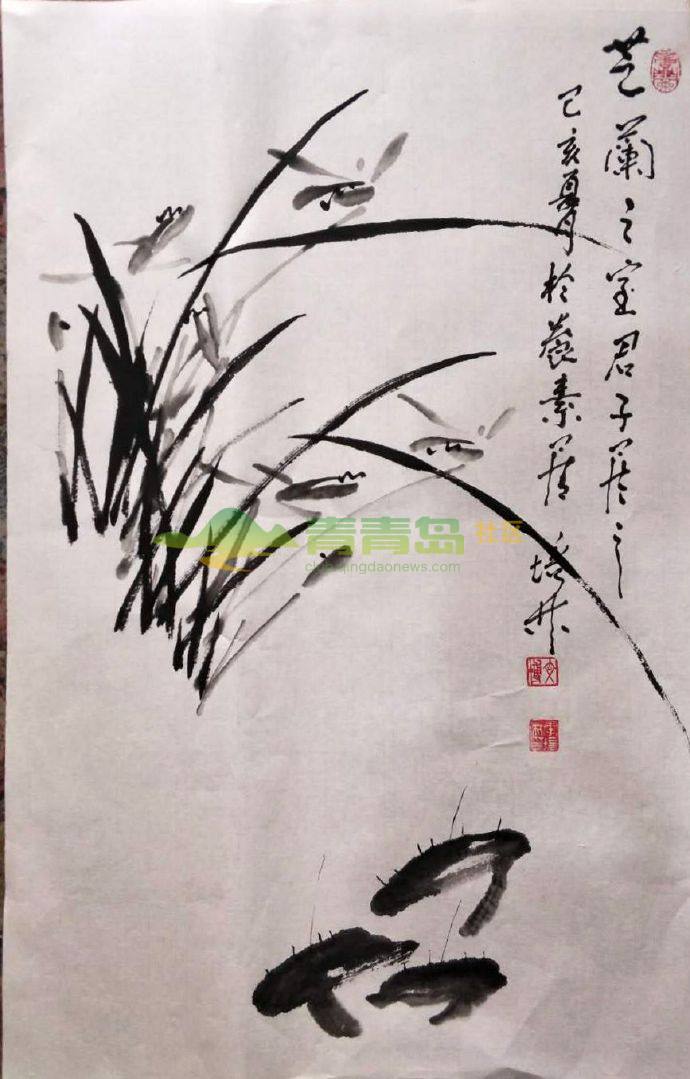 芝蘭之室君子居之
己亥夏月於養素居 培林
青青岛社区
club.qingdaonews.com